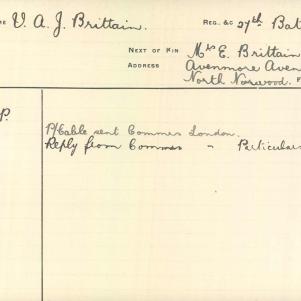 V. A. J. Brittain.
REG. &C 27th Bat
NEXT OF KIN Mrs E. Brittain
ADDRESS Avenmore Aven
North Norwood.
P.
P/Cable sent Commes London.
Reply from Commes " Particulars